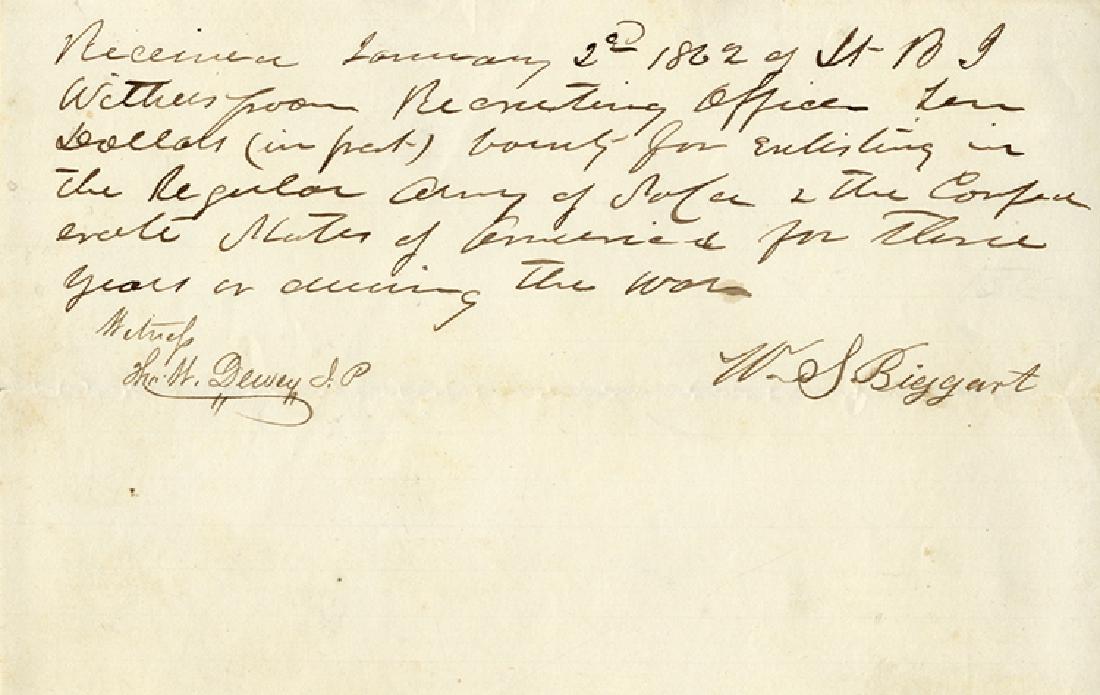 Received January 2nd 1862 of Lt B J
Witherspoon Recruiting Officer Ten
Dollars (in part) bounty for Enlisting in
the Regular Army of No Ca & the Confed
erate States of America for three
years or during the War
Witness
Tho. W. Dewey J.P
Wm S Biggart